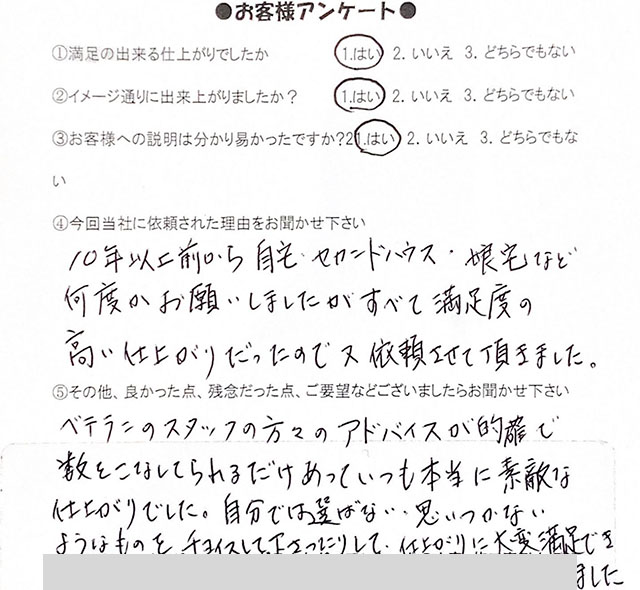 ●お客様アンケート●
①満足の出来る仕上がりでしたか 1.はい 2. いいえ 3. どちらでもない
②イメージ通りに出来上がりましたか? 1.はい 2. いいえ 3. どちらでもない
③お客様への説明は分かり易かったですか?21.はい 2. いいえ 3. どちらでもな
い
④今回当社に依頼された理由をお聞かせ下さい
10年以上前から自宅・セカンドハウス・娘宅など
何度かお願いしましたがすべて満足度の
高い仕上がりだったので又依頼させて頂きました。
⑤その他、良かった点、残念だった点、ご要望などございましたらお聞かせ下さい
ベテランのスタッフの方々のアドバイスが的確で
数をこなしてられるだけあっていつも本当に素敵な
仕上がりでした。自分では選ばない・思いつかない
ようなものをチョイスして下さったりして、仕上がりに大変満足でき
ました